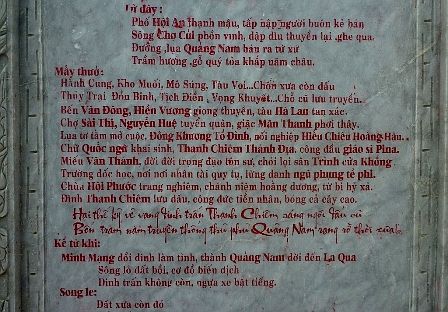 Từ đây:
Phố Hội An thạnh mậu, tấp nập người buôn kẻ bán
Sông Chợ Củi phồn vinh, dập dìu thuyền tại ghe qua.
Đường, lụa Quảng Nam bán ra tứ xứ
Trầm hương, gỗ quý tỏa khắp năm châu.
Mấy thuở:
Hành Cung, Kho Muối, Mô Súng, Tàu Voi...Chốn xưa còn dấu
Thủy Trại, Đồn Binh, Tịch Điền, Vọng Khuyết...Chỗ cũ lưu truyền.
Bến Vân Đông, Hiện Vương gióng thuyền, tàu Hà Lan tan xác.
Chợ Sài Thị, Nguyên Huệ tuyển quân, giặc Mãn Thanh phơi thây.
Lụa tơ tằm mở cuộc, Đông Khương Tổ Đình, nối nghiệp Hiếu Chiêu Hoàng Hậu.
Chữ Quốc ngữ khai sinh, Thanh Chiêm Thánh Địa, công đầu giáo sĩ Pina.
Miếu Văn Thánh, đời đời trọng đạo tôn sư, chói lọi sân Trình cửa Khổng
Trường đốc học, nơi nơi nhân tài quy tụ, lừng danh ngũ phụng tề phi.
Chùa Hội Phước trang nghiêm, chánh niệm hoằng dương, từ bi hỷ xả.
Đình Thanh Chiêm lưu dấu, công đức tiền nhân, bóng cả cây cao.
Hai thế kỷ vẻ vang dinh trấn Thanh Chiêm vàng ngời dấu cũ
Bốn trăm năm truyền thống thủ phủ Quảng Nam rạng rỡ thời xưa
Kể từ khi:
Minh Mạng đổi dinh làm tỉnh, thành Quảng Nam dời đến La Qua
Sông lở đất bồi, cơ đồ biến dịch
Dinh trấn không còn, ngựa xe bặt tiếng.
Song le:
Đất xưa còn đó